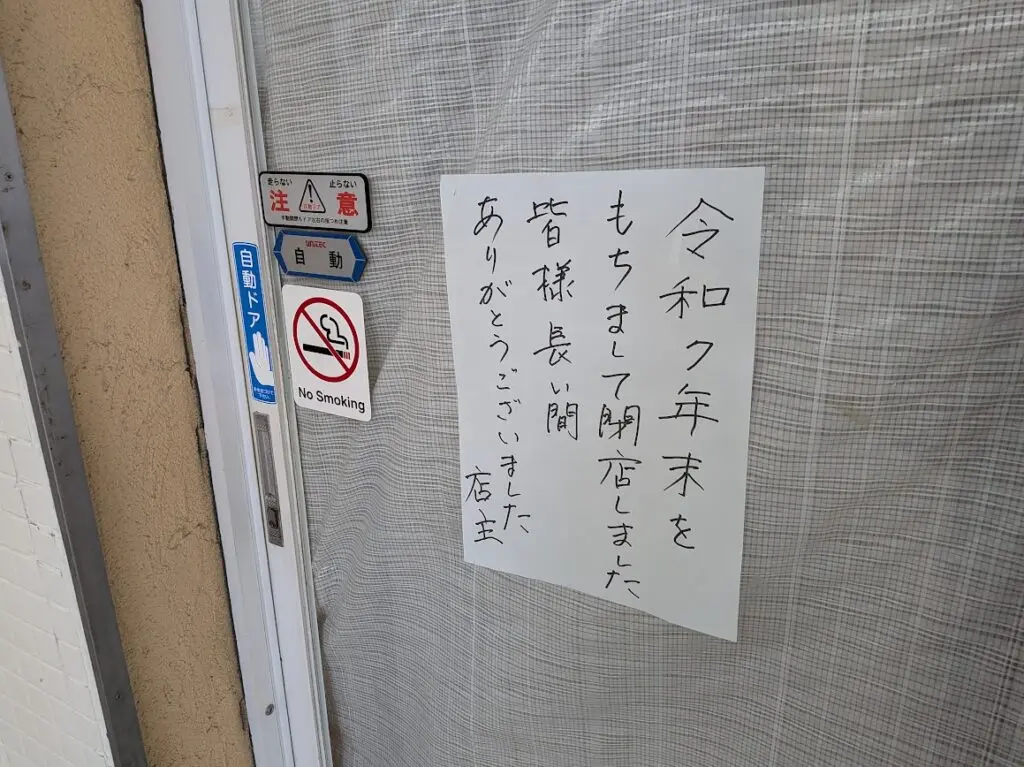 令和7年末を
もちまして閉店しました
皆様長い間
ありがとうございました
店主
走らない 止らない
注意
自動
自動ドア
No Smoking